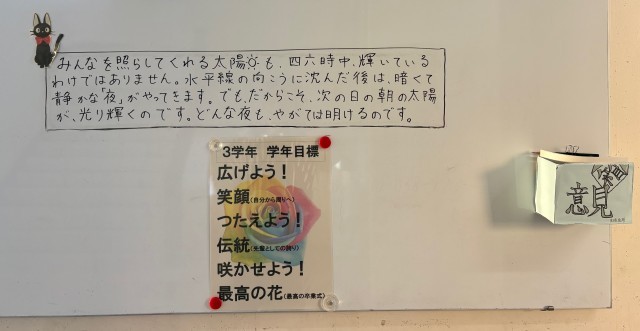 みんなを照らしてくれる太陽☼も、四六時中、輝いている
わけではありません。水平線の向こうに沈んだ後は、暗くて
静かな「夜」がやってきます。でも、だからこそ、次の日の朝の太陽
が、光り輝くのです。どんな夜も、やがては明けるのです。
3学年 学年目標
広げよう!
笑顔(自分から周りへ)
つたえよう!
伝統(先輩としての誇り)
咲かせよう!
最高の花(最高の卒業式)
意見